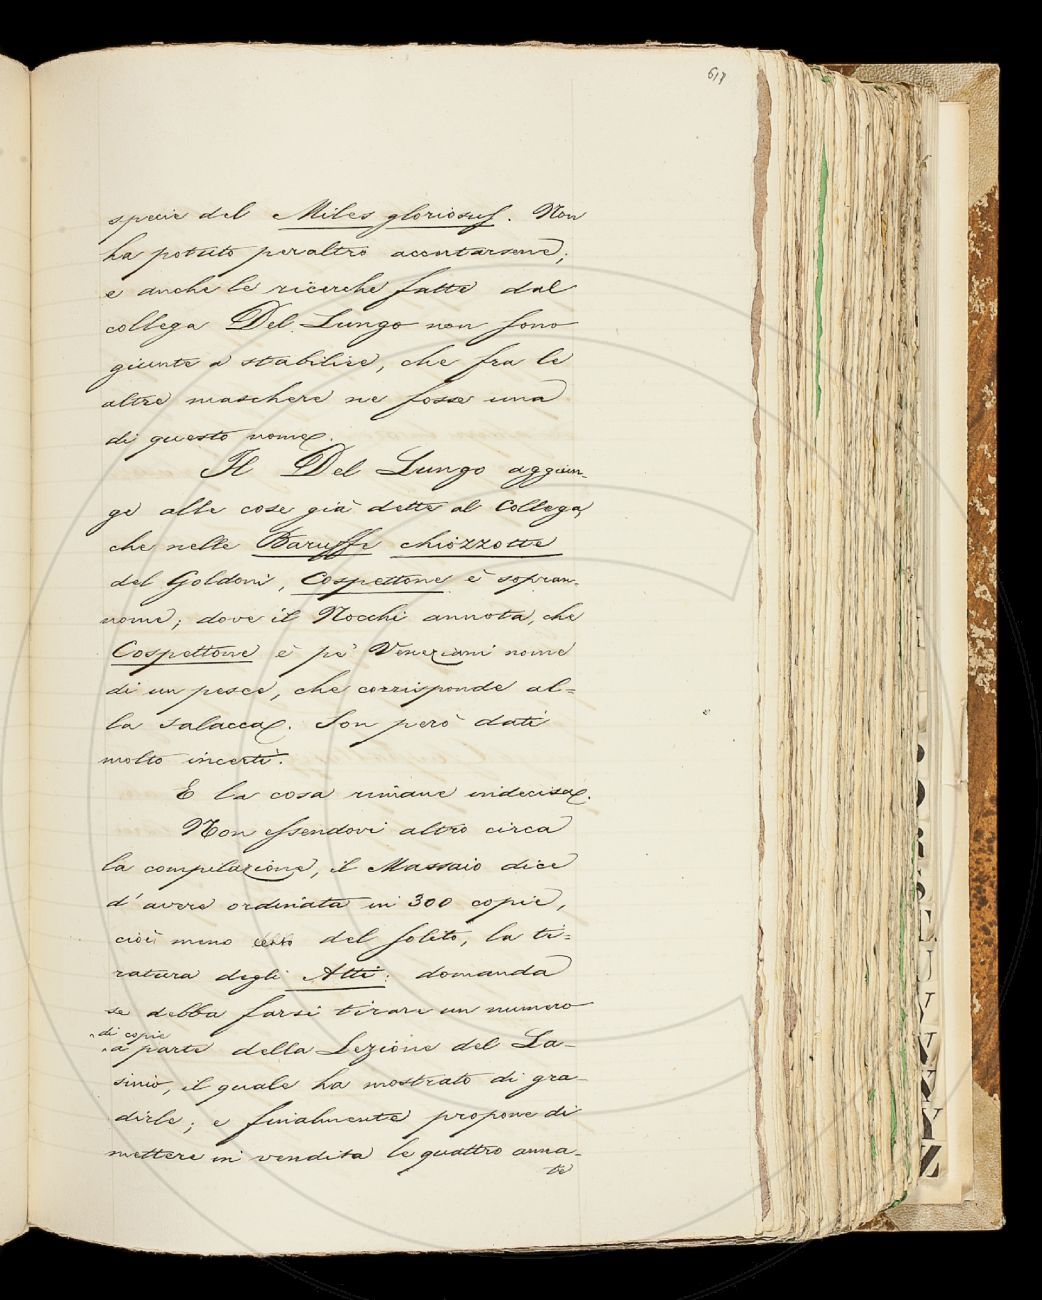 617
specie del Miles gloriosus. Non
ha potuto peraltro accertarsene;
e anche le ricerche fatte dal
collega Del Lungo non sono
giunte a stabilire, che fra le
altre maschere ne fosse una
di questo nome.
Il Del Lungo aggiun-
ge alle cose già dette al Collega,
che nelle Baruffe chiozzotte
del Goldoni, Cospettone è sopran-
nome; dove il Nocchi annota, che
Cospettone è pe' Veneziani nome
di un pesce, che corrisponde al=
la salacca. Son però dati
molto incerti.
E la cosa rimane indecisa.
Non essendovi altro circa
la compilazione, il Massaio dice
d'avere ordinata in 300 copie,
cioè meno del solito, la ti=
ratura degli Atti: domanda
se debba farsi tirare un numero
di copie
a parte della Lezione del La-
sinio, il quale ha mostrato di gra-
dirle; e finalmente propone di
mettere in vendita le quattro anna-
te